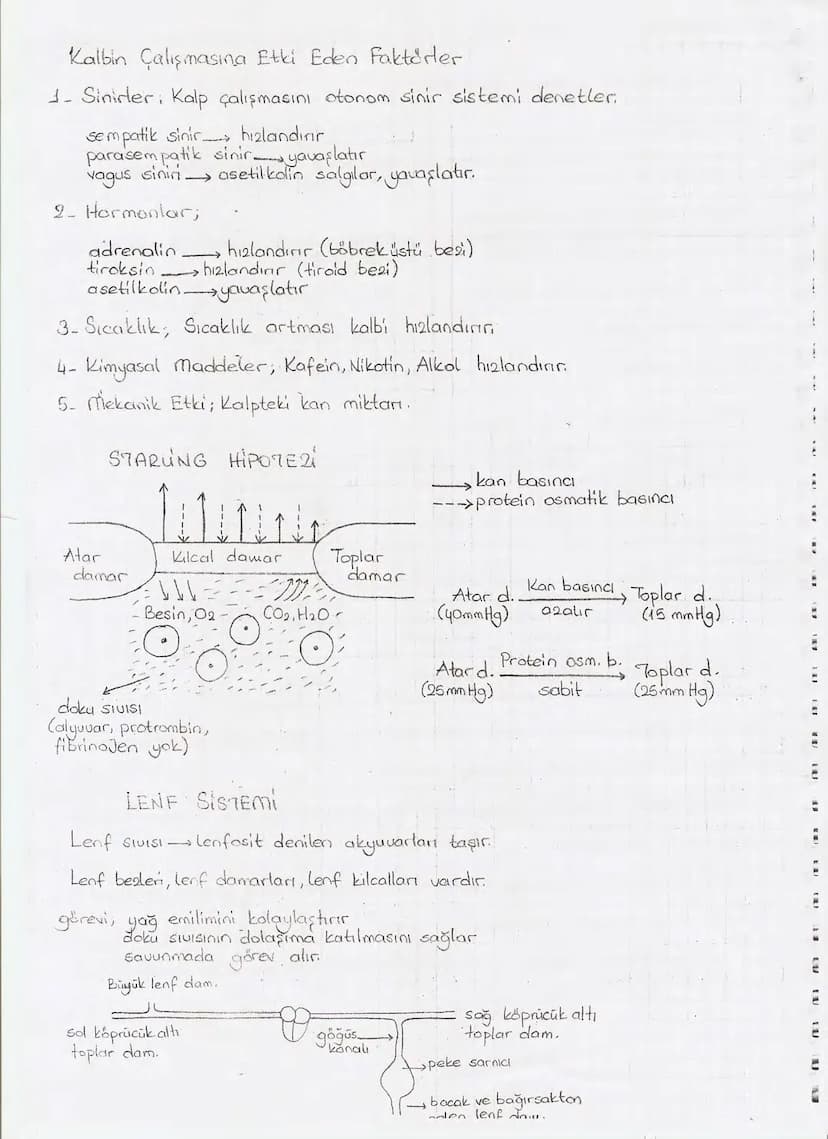 Kalbin Çalışmasına Etki Eden Faktörler
1- Sinirler; Kalp çalışmasını otonom sinir sistemi denetler.
sempatik sinir → hızlandırır
parasempatik sinir → yavaşlatır
vagus siniri → asetilkolin salgılar, yavaşlatır.
2- Hormonlar;
adrenalin → hızlandırır (böbreküstü bezi)
tiroksin → hızlandırır (tiroid bezi)
asetilkolin → yavaşlatır
3- Sıcaklık; Sıcaklık artması kalbi hızlandırır.
4- Kimyasal Maddeler; Kafein, Nikotin, Alkol hızlandırır.
5- Mekanik Etki; Kalpteki kan miktarı.
STARLİNG HİPOTEZİ
→ kan basıncı
---> protein osmatik basıncı
Atar damar
Kılcal damar
Toplar damar
Besin, O2
CO2, H2O
doku sıvısı
(alyuvar, protrombin,
fibrinojen yok)
Atar d. Kan basıncı → Toplar d.
(40mmHg) azalır (15 mmHg)
Atar d. Protein osm. b. → Toplar d.
(25mmHg) sabit (25mm Hg)
LENF SİSTEMİ
Lenf sıvısı → lenfosit denilen akyuvarları taşır.
Lenf bezleri, lenf damarları, lenf kılcalları vardır.
görevi, yağ emilimini kolaylaştırır
doku sıvısının dolaşıma katılmasını sağlar
savunmada görev alır.
Büyük lenf dam.
sol köprücük altı
toplar dam.
göğüs kanalı
sağ köprücük altı
toplar dam.
peke sarnıcı
bacak ve bağırsaktan
gelen lenf dam.